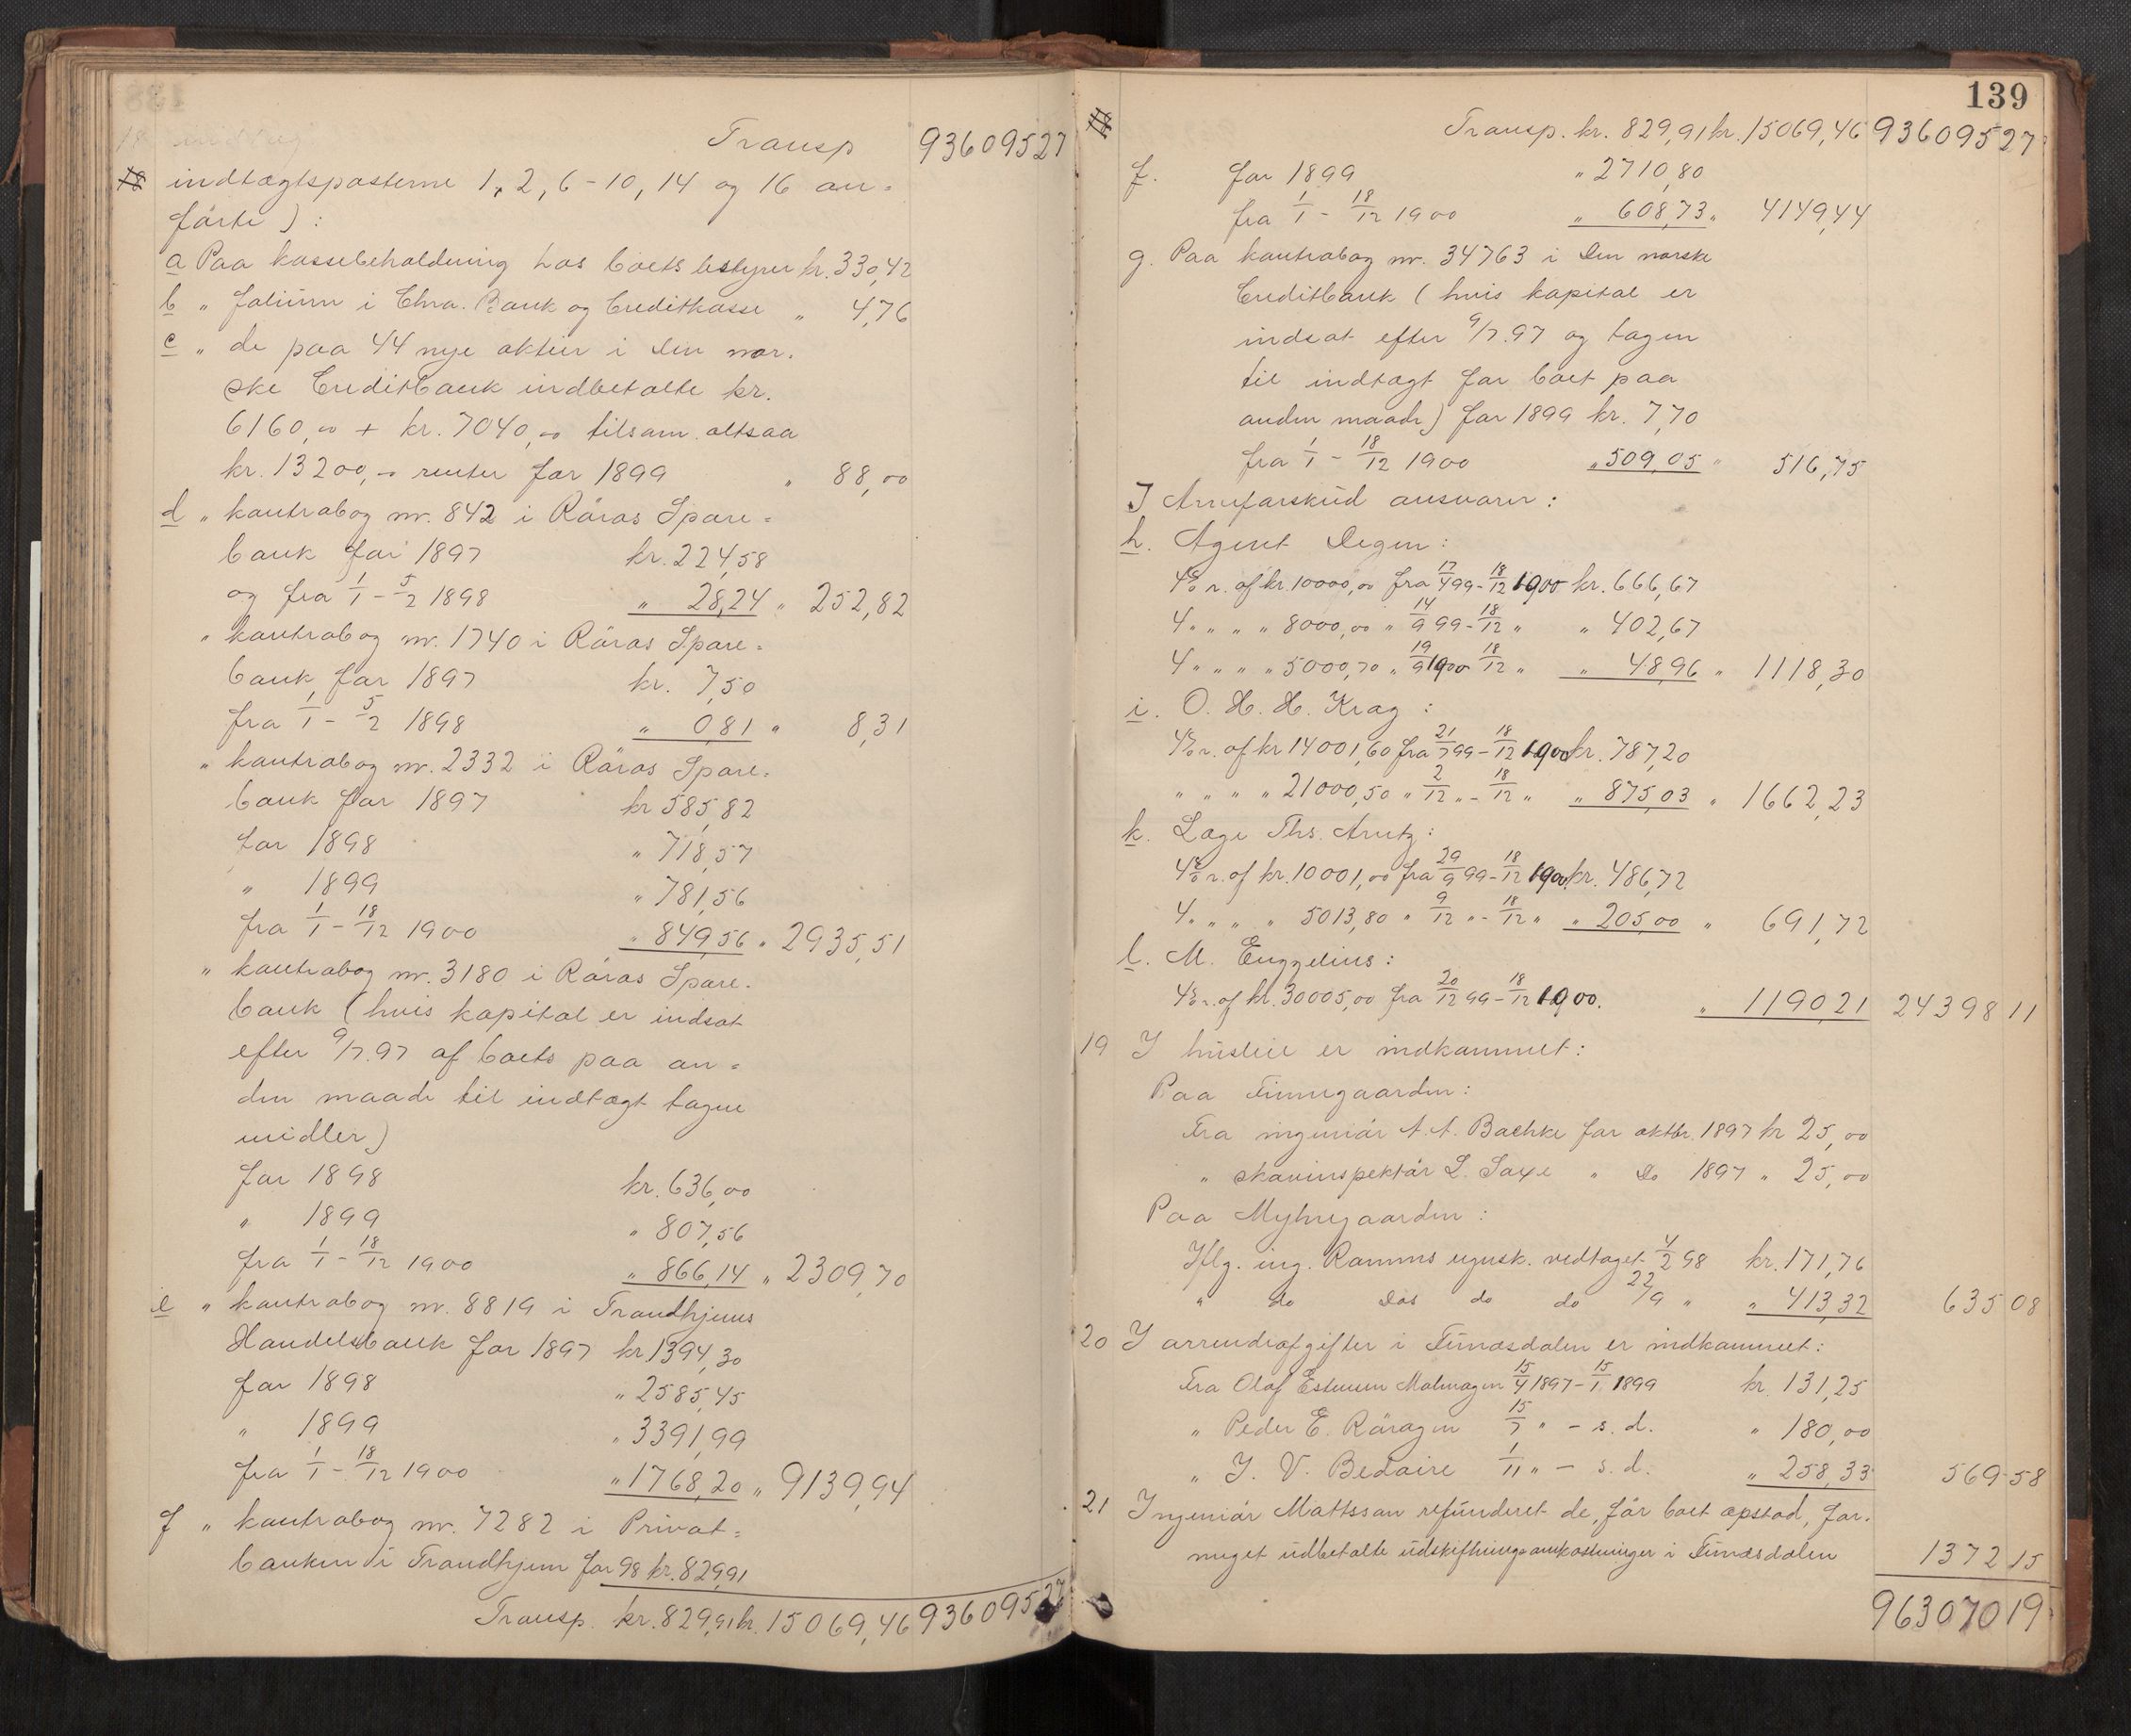 Transp 93609527
18 indtægtsposterne 1, 2, 6-10, 14 og 16 an=
førte):
a Paa kassebeholdning hos boets bestyrer kr. 330,42
b " folium i Chra. Bank og Creditkasse " 4,76
c " de paa 44 nye aktier i Den nor.
ske Creditbank indbetalte kr.
6160,00 + kr. 7040,00 tilsam. altsaa
kr. 13200,- renter for 1899 " 88,00
d " kontrabog nr. 842 i Röros Spare=
bank for 1897 kr. 224,58
og fra 1/1 - 5/2 1898 " 28,24 " 252,82
" kontrabog nr. 1740 i Röros Spare=
bank for 1897 kr. 7,50
fra 1/1 - 5/2 1898 " 0,81 " 8,31
" kontrabog nr. 2332 i Röros Spare=
bank for 1897 kr 585,82
for 1898 " 718,57
" 1899 " 781,56
fra 1/1 - 18/12 1900 " 849,56 " 2935,51
" kontrabog nr. 3180 i Röros Spare=
bank (hvis kapital er indsat
efter 9/7.97 af boets paa an=
den maade til indtægt tagne
midler)
for 1898 kr. 636,00
" 1899 " 807,56
fra 1/1 - 18/12 1900 " 866,14 " 2309,70
e " kontrabog nr. 8819 i Trondhjems
Handelsbank for 1897 kr 1394,30
for 1898 " 2585,45
" 1899 " 3391,99
fra 1/1 - 18/12 1900 " 1768,20 " 9139,94
f " kontrabog nr. 7282 i Privat=
banken i Trondhjem for 98 kr. 829,91
Transp. kr. 829,91 kr. 15069,46 93609527
139
18 Transp. kr. 829,91 kr. 15069,46 93609527
f. for 1899 " 2710,80
fra 1/1 - 18/12 1900 " 608,73 " 4149,44
g. Paa kontrabog nr. 34763 i Den norske
Creditbank (hvis kapital er
indsat efter 9/7.97 og tagen
til indtægt for boet paa
anden maade) for 1899 kr. 7,70
fra 1/1 - 18/12 1900 " 509,05 " 516,75
I Arveforskud ansvarer:
h. Agent Degen:
4% r. af kr. 10000,00 fra 17/4 99 - 18/12 1900 kr. 666,67
4 " " " " 8000,00 " 14/9 99 - 18/12 " " 402,67
4 " " " " 5000,70 " 19/9 1900 18/12 " " 48,96 " 1118,30
i. O. H. H. Krag:
4% r. af kr 14001,60 fra 21/7 99 - 18/12 1900 kr. 787,20
" " " " 21000,50 " 2/12 " - 18/12 " " 875,03 " 1662,23
k. Læge Ths. Arntz:
4% r. af kr. 10001,00 fra 29/9 99 - 18/12 1900 kr. 486,72
4 " " " " 5013,80 " 9/12 " - 18/12 " " 205,00 " 691,72
l. M. Engzelius:
4% r. af kr. 30005,00 fra 20/12 99 - 18/12 1900. " 1190,21 2439811
19 I husleie er indkommet:
Paa Finnegaarden:
Fra ingeniör A. A. Bachke for oktbr. 1897 kr 25,00
" skovinspektör L. Saxe " Do 1897 " 25,00
Paa Myhregaarden:
Iflg. ing. Ramms regnsk. vedtaget 4/2 98 kr. 171,76
" do Dos do do 22/9 " " 413,32 63508
20 I arrendeafgifter i Funæsdalen er indkommet:
Fra Olof Estensen Malmagen 15/4 1897 - 15/1 1899 kr. 131,25
" Peder E. Röragen 15/7 " - s. d. " 180,00
" J. V. Bedaire 1/11 " - s. d. " 258,33 56958
21 Ingeniör Mattsson refunderet de, för boet opstod, for.
meget udbetalte udskiftningsomkostninger i Funæsdalen 137215
96307019